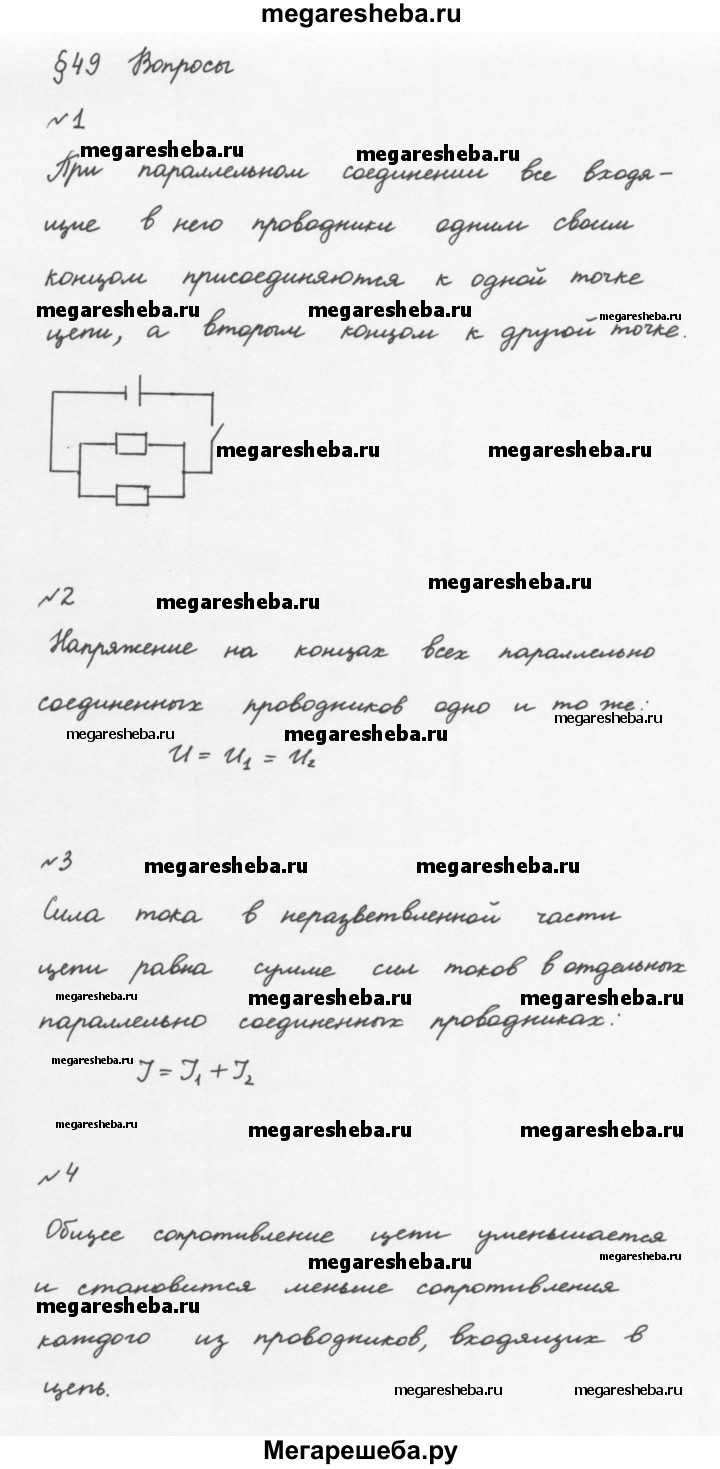 megaresheba.ru
§49 Вопросы
№1
megaresheba.ru megaresheba.ru
При параллельном соединении все входя-
щие в него проводники одним своим
концом присоединяются к одной точке
megaresheba.ru megaresheba.ru megaresheba.ru
цепи, а вторым концом к другой точке.
megaresheba.ru megaresheba.ru
megaresheba.ru
№2 megaresheba.ru
Напряжение на концах всех параллельно
соединенных проводников одно и то же:
megaresheba.ru megaresheba.ru megaresheba.ru
U = U₁ = U₂
№3 megaresheba.ru megaresheba.ru
Сила тока в неразветвленной части
цепи равна сумме сил токов в отдельных
megaresheba.ru megaresheba.ru megaresheba.ru
параллельно соединенных проводниках:
megaresheba.ru
I = I₁ + I₂
megaresheba.ru megaresheba.ru megaresheba.ru
№4
Общее сопротивление цепи уменьшается
megaresheba.ru megaresheba.ru
и становится меньше сопротивления
megaresheba.ru
каждого из проводников, входящих в
цепь.
megaresheba.ru megaresheba.ru
Мегарешеба.ру